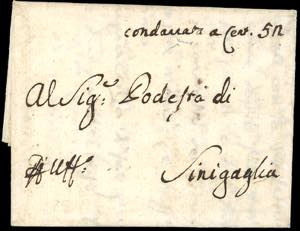 condannati a Cent. 52
Al Sigr. Podestà di
Uff.o
Sinigaglia